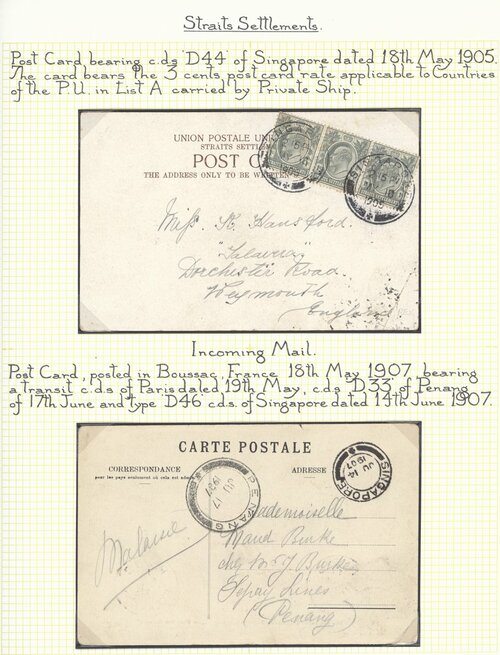 Straits Settlements.
Post Card bearing c.d.s 'D44' of Singapore dated 18th May 1905.
The card bears the 3 cents post card rate applicable to Countries
of the P.U. in List A carried by Private Ship.
UNION POSTALE UNI
STRAITS SETTLEM
POST C
THE ADDRESS ONLY TO BE WRITTEN
Miss K. Hansford.
"Talavera"
Dorchester Road.
Weymouth
England
Incoming Mail.
Post Card, posted in Boussac, France 18th May 1907, bearing
a transit c.d.s of Paris dated 19th May, c.d.s 'D33' of Penang
of 17th June and type 'D46' c.d.s. of Singapore dated 14th June 1907.
CARTE POSTALE
CORRESPONDANCE
ADRESSE
PENANG
JU 17
1907
SINGAPORE
JU 14
1907
Malaisie
Mademoiselle
Maud Burke
chez Mr J Burke
Sepoy Lines
(Penang)